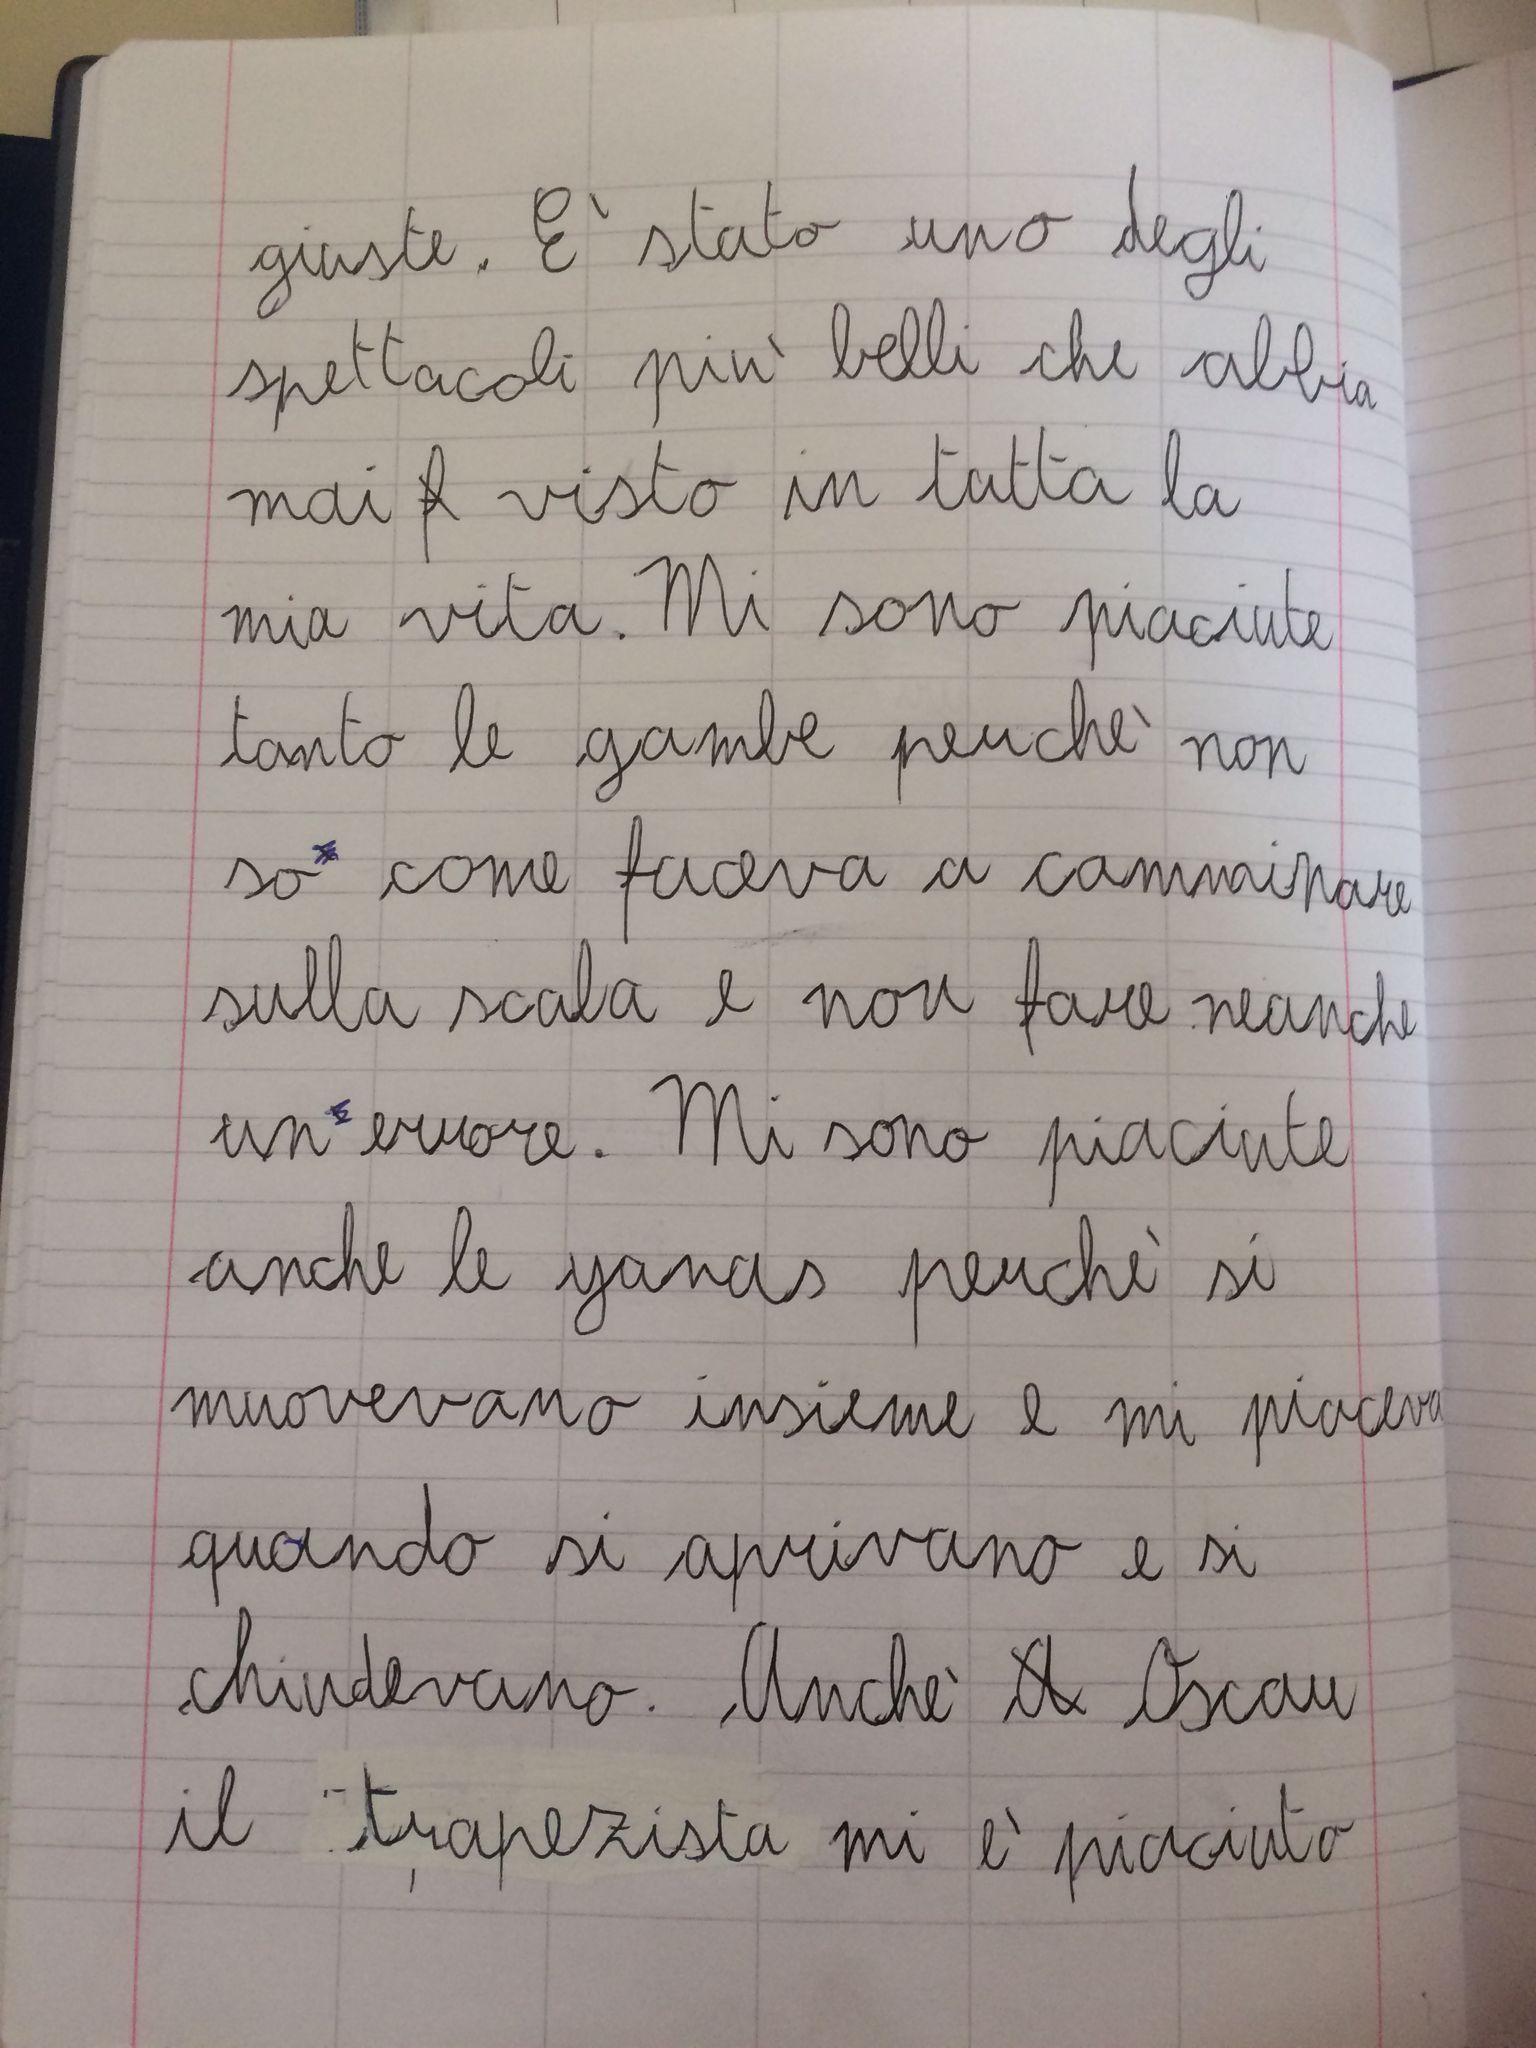 giuste. E' stato uno degli
spettacoli più belli che abbia
mai visto in tutta la
mia vita. Mi sono piaciute
tanto le gambe perchè non
so come faceva a cammipare
sulla scala e non fare neanche
un errore. Mi sono piaciute
anche le yanas perchè si
muovevano insieme e mi piaceva
quando si aprivano e si
chiudevano. Anchè Oscar
il trapezista mi è piaciuto